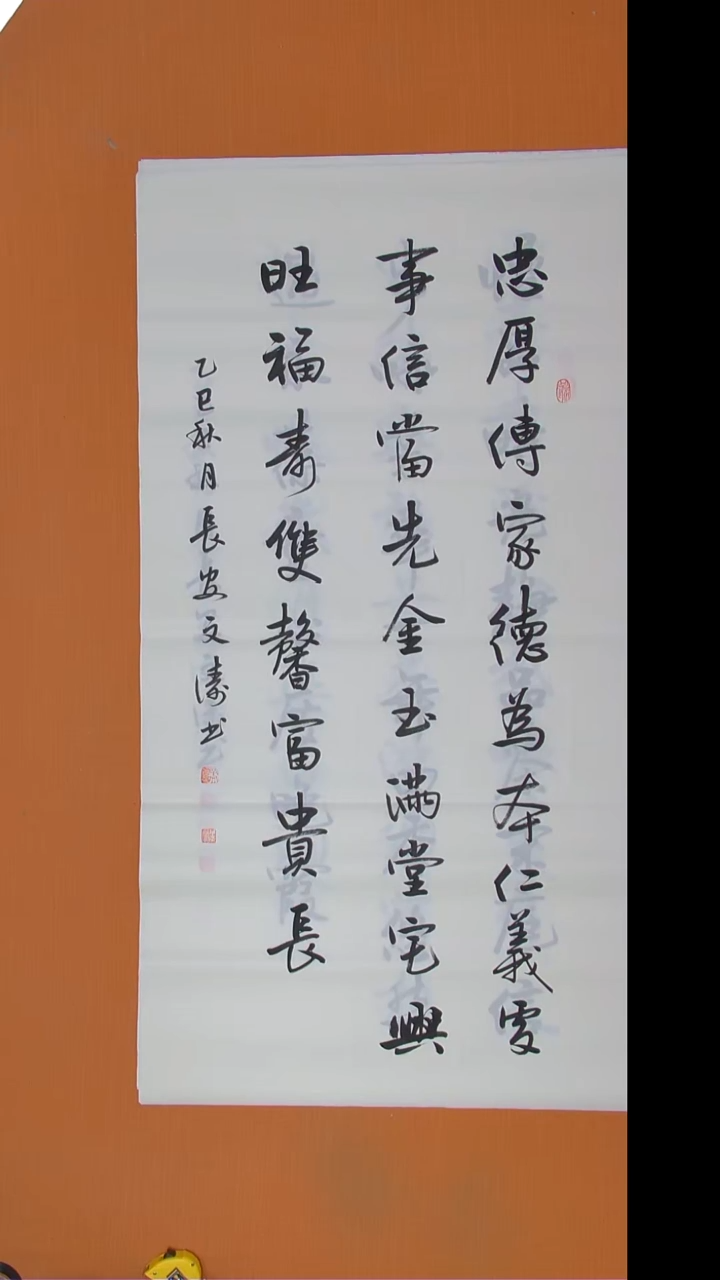 忠厚傳家德為本仁義處
事信當先金玉滿堂宅興
旺福壽雙馨富貴長
乙巳秋月長安文濤书